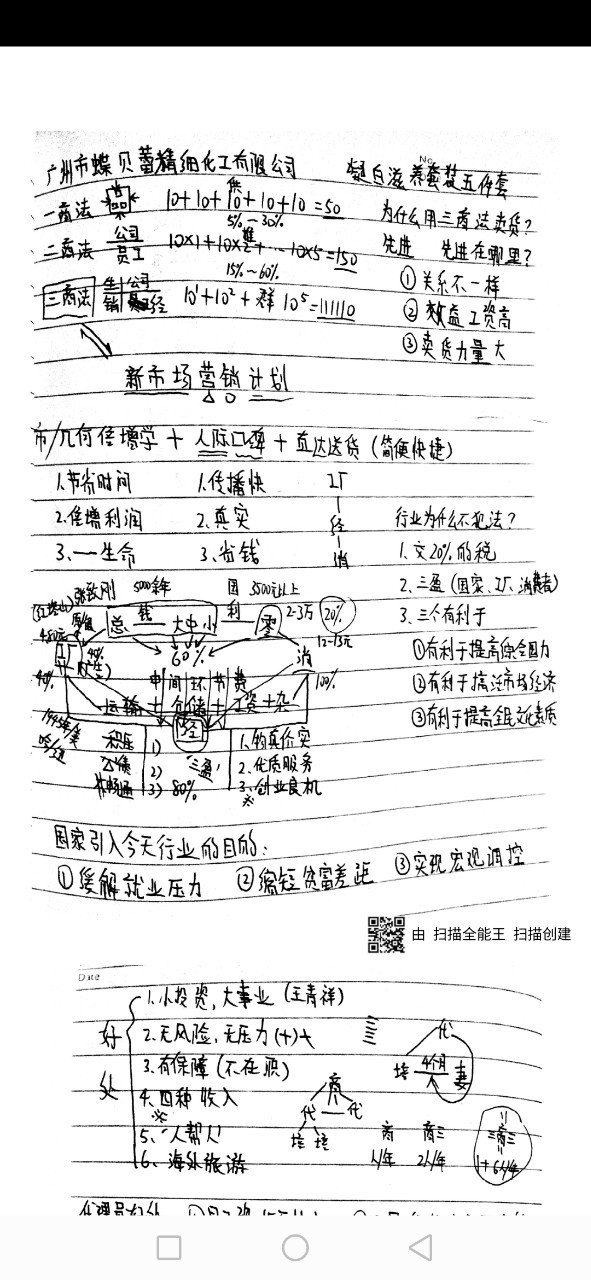 广州市蝶贝蕾精细化工有限公司 No. 凝白滋养套装五件套
一商法 10+10+10+10+10=50 为什么用三商法卖货?
5%~30%
二商法 公司 员工 10×1+10×2+…10×5=150 先进 先进在哪里?
15%~60% ①关系不一样
三商法 生 公司 销 经 10¹+10²+群 10⁵=111110 ②效益工资高
③卖货力量大
新市场营销计划
市/几何倍增学+人际口碑+直达送货(简便快捷)
1.节省时间 1.传播快 工厂
2.倍增利润 2.真实 经 行业为什么不犯法?
3.一生命 3.省钱 消 1.交20%的税
张致刚 5000余年 国 3500元以上 2.三盈(国家、工厂、消费者)
总 钱 大中小 利 零 2-3万 20% 3.三个有利于
480元 12-13元
60% 消 ①有利于提高综合国力
40% 中间环节费 100% ②有利于搞活市场经济
运输+仓储+工资+杂 ③有利于提高全民文化素质
1945年美 经
积压 1) 1.物真价实
2) 三盈 2.优质服务
畅通 3) 80% 3.创业良机
国家引入今天行业的目的:
①缓解就业压力 ②缩短贫富差距 ③实现宏观调控
由 扫描全能王 扫描创建
Date
好处
1.小投资,大事业(王青祥)
2.无风险,无压力(+)+ 代
3.有保障(不在职) 培 4个月 妻
4.四种收入 商
代 — 代
5.'人帮人' 培 培 商 商三 三商三
6.海外旅游 1/年 2/年 1+6/年